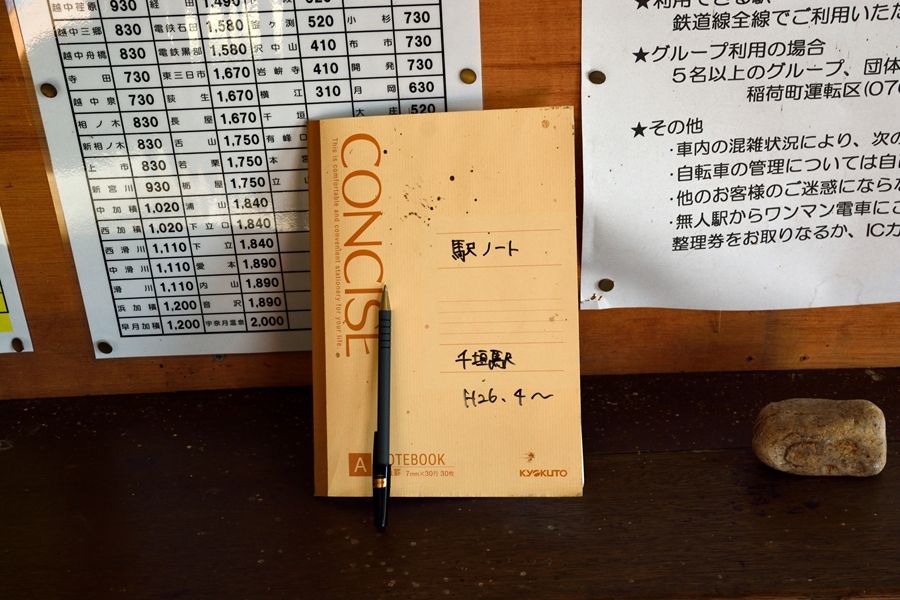 越中荏原 930 経田 1,490
越中三郷 830 電鉄石田 1,580 釜ヶ渕 520 小杉 730
越中舟橋 830 電鉄黒部 1,580 沢中山 410 布市 730
寺田 730 東三日市 1,670 岩峅寺 410 開発 730
越中泉 730 荻生 1,670 横江 310 月岡 630
相ノ木 830 長屋 1,670 千垣 大庄 520
新相ノ木 830 舌山 1,750 有峰口
上市 830 若栗 1,750 本宮
新宮川 930 栃屋 1,750 立
中加積 1,020 浦山 1,840
西加積 1,020 下立口 1,840
西滑川 1,110 下立 1,840
中滑川 1,110 愛本 1,890
滑川 1,110 内山 1,890
浜加積 1,200 音沢 1,890
早月加積 1,200 宇奈月温泉 2,000
CONCISE
This is comfortable and convenient stationery for your life.
駅ノート
千垣駅
H26.4〜
A NOTEBOOK
7mm×30行 30枚
KYOKUTO
★利用できる駅
鉄道線全線でご利用いただ
★グループ利用の場合
5名以上のグループ、団体
稲荷町運転区(076
★その他
・車内の混雑状況により、次の
・自転車の管理については自
・他のお客様のご迷惑にならな
・無人駅からワンマン電車にこ
整理券をお取りなるか、ICカ